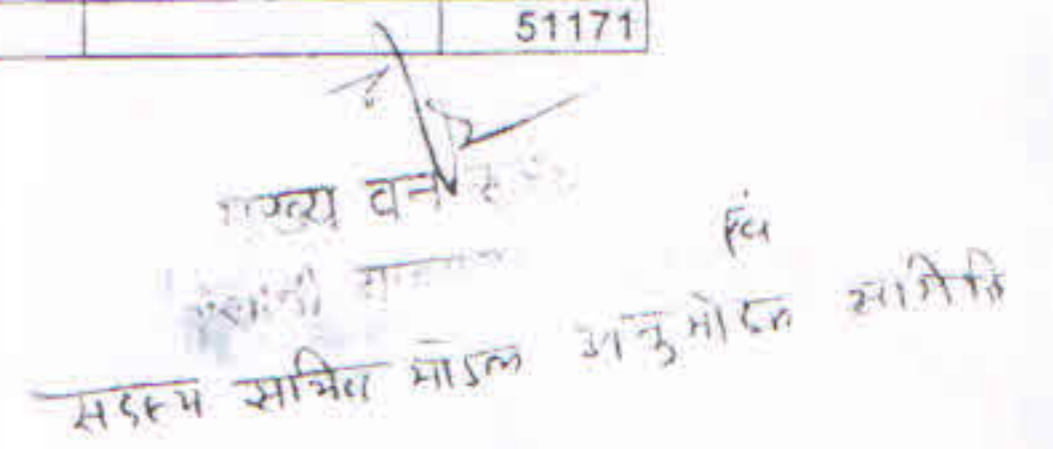 51171
मुख्य वन
एवं
सदस्य सचिव मॉडल अनुमोदन समिति